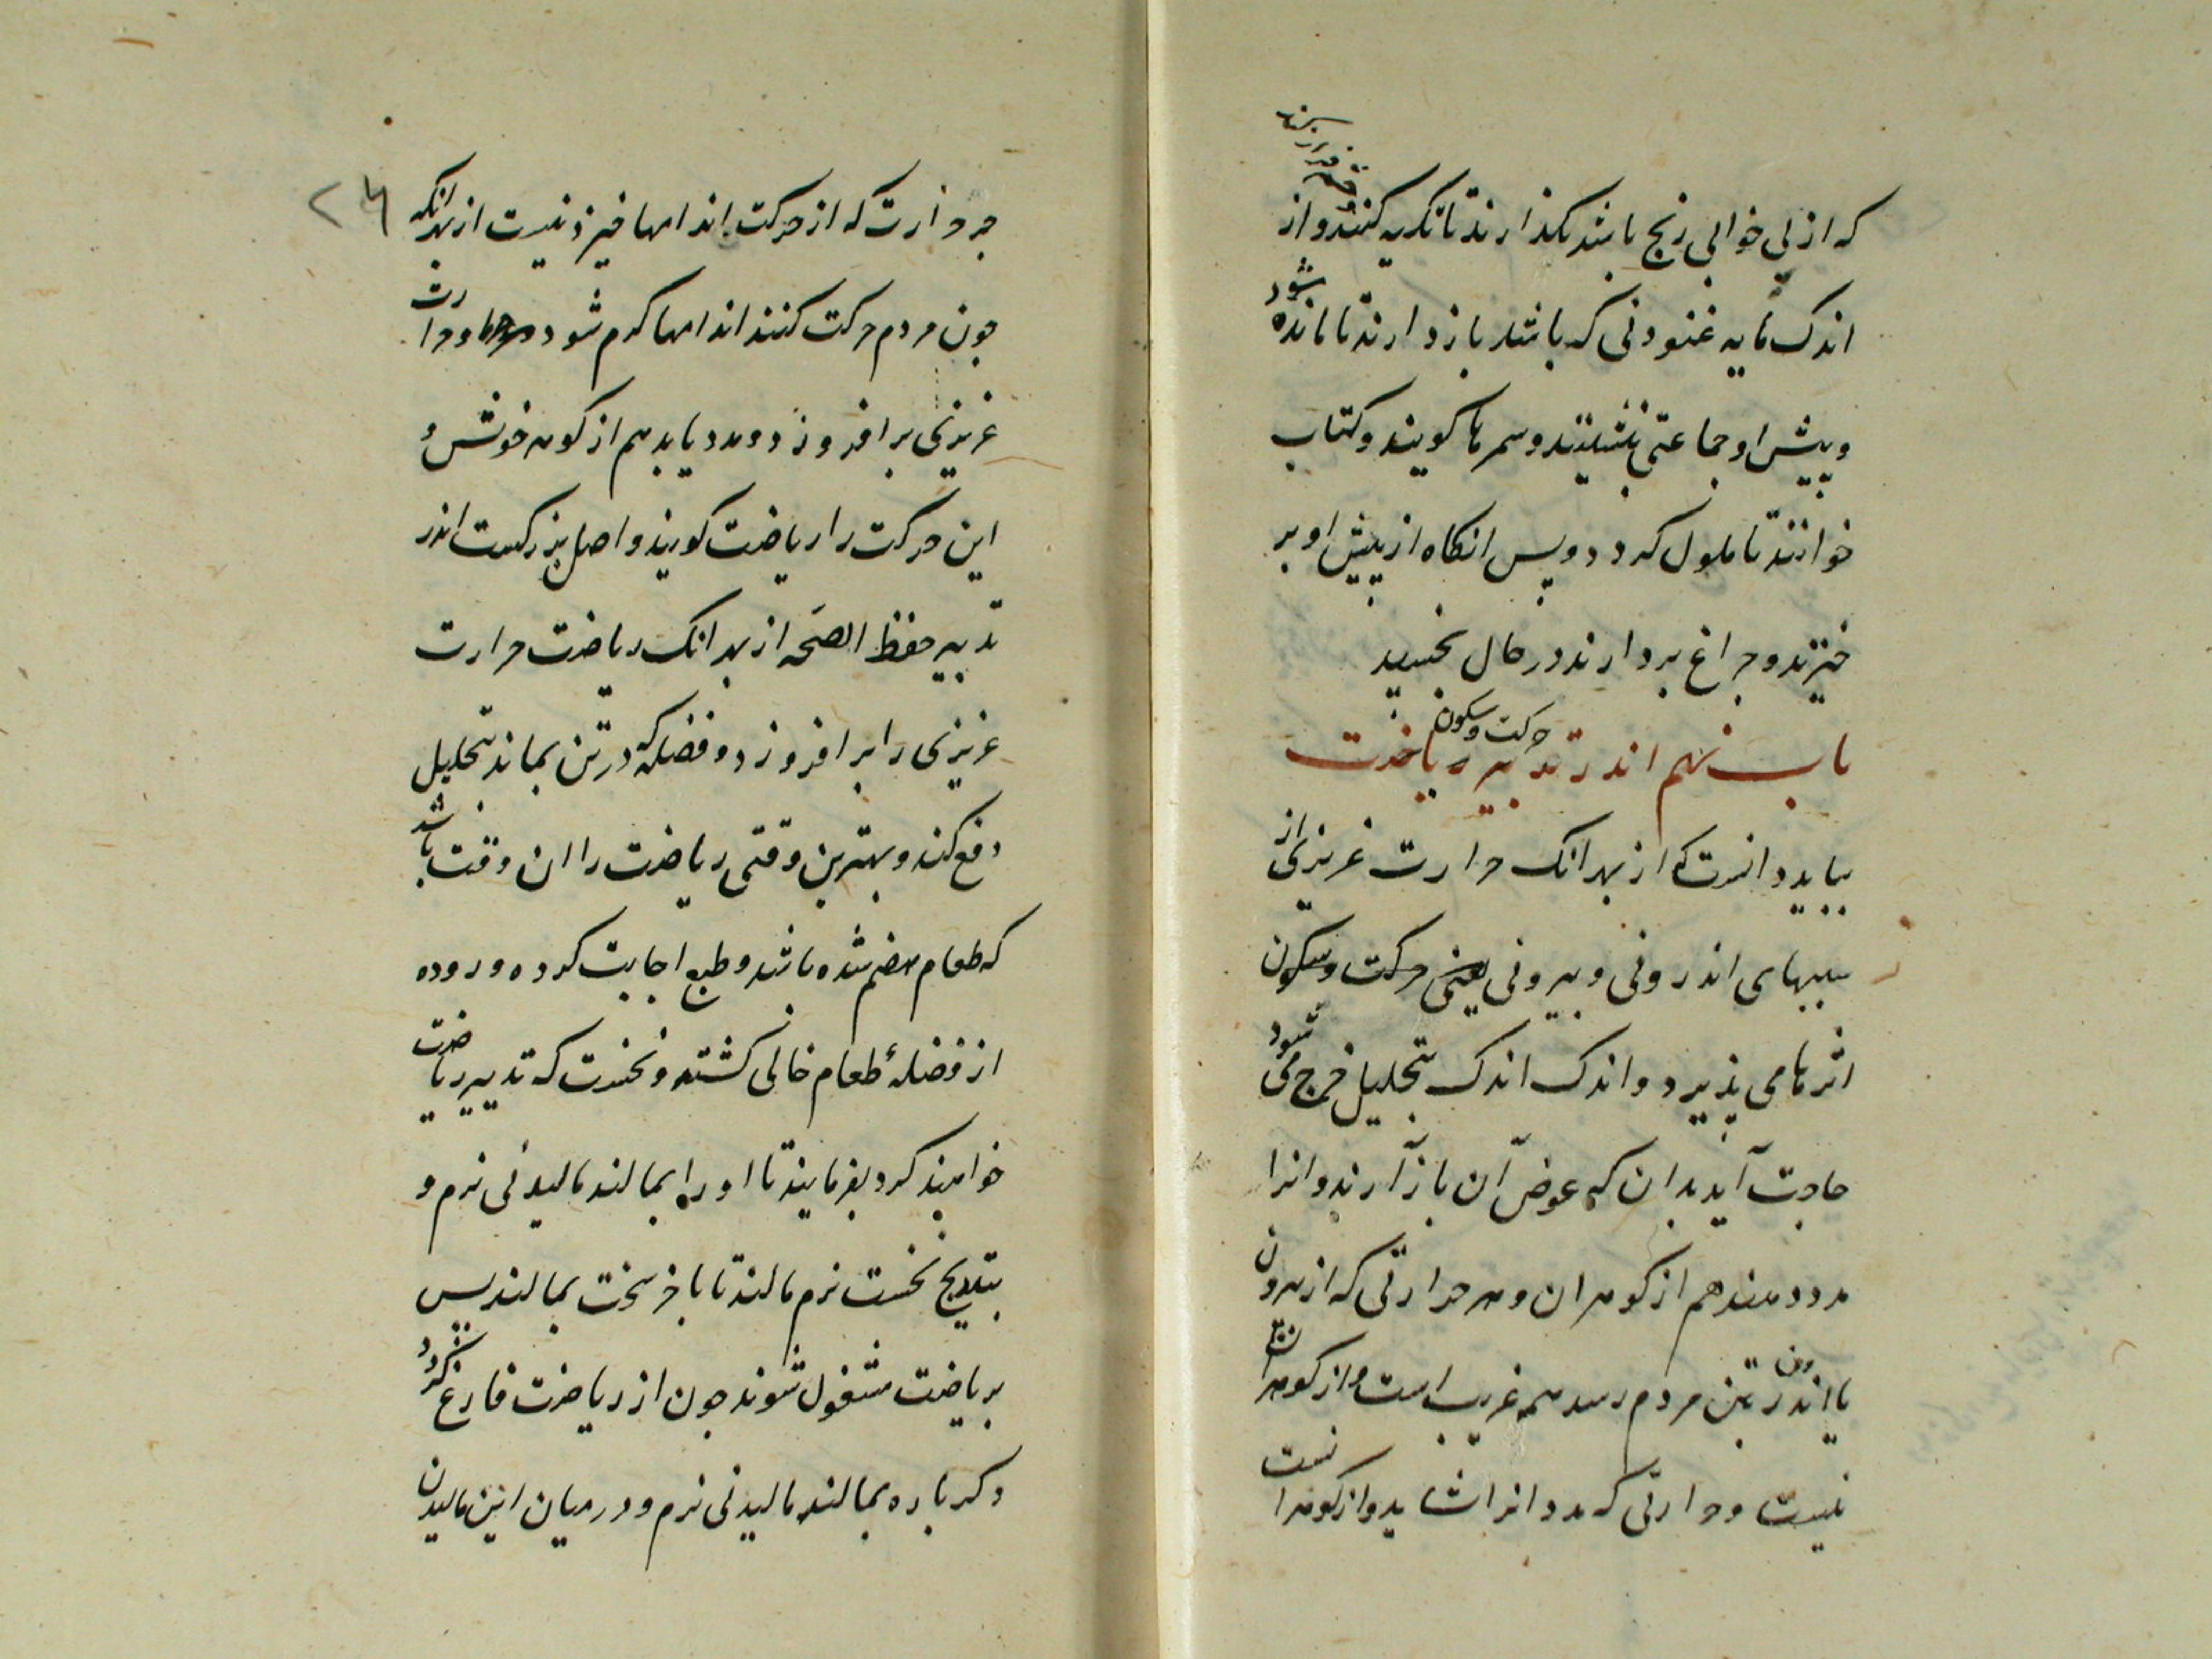 که از بی خوابی رنج باشد نکذارند تا تکیه کنند و از
اندک مایه غنودنی که باشد باز دارند تا مانده شود
و پیش او جماعتی بنشینند و سمرها کویند و کتاب
خوانند تا ملول کردد و پس انکاه از پیش او بر
خیزند و جراغ بردارند در حال بخسپد
باب نهم اندر تدبیر حرکت و سکون ریاضت
بباید دانست که از بهر انک حرارت غریزی از
سببهای اندرونی و بیرونی یعنی حرکت و سکون
اثرها می پذیرد و اندک اندک بتحلیل خرج می شود
حاجت آید بدان که عوض آن باز آرند و انرا
مدد دهند هم از کوهر ان و هر حرارتی که از بیرون
یا اندرون تن مردم رسد همه غریب است و از کوهر ان
نیست و حرارتی که مدد انرا شاید و از کوهر انست
جز حرارت که از حرکت اندامها خیزذ نیست از بهر انکه
جون مردم حرکت کنند اندامها کرم شود و حرارت
غریزی برافروزد و مدد یابد هم از کوهر خوش و
این حرکت را ریاضت کویند و اصل بزرکست اندر
تدبیر حفظ الصحه از بهر انک ریاضت حرارت
غریزی را برافروزد و فضله که در تن بماند بتحلیل
دفع کند و بهترین وقتی ریاضت را ان وقت باشد
که طعام هضم شده باشد و طبع اجابت کرده و روده
از فضلهٔ طعام خالی کشته و نخست که تدبیر ریاضت
خواهند کرد بفرمایند تا او را بمالند مالیدنی نرم و
بتدریج نخست نرم مالند تا باخر سخت بمالند پس
بریاضت مشغول شوند جون از ریاضت فارغ کردد
دکرباره بمالند مالیدنی نرم و در میان این مالیدن